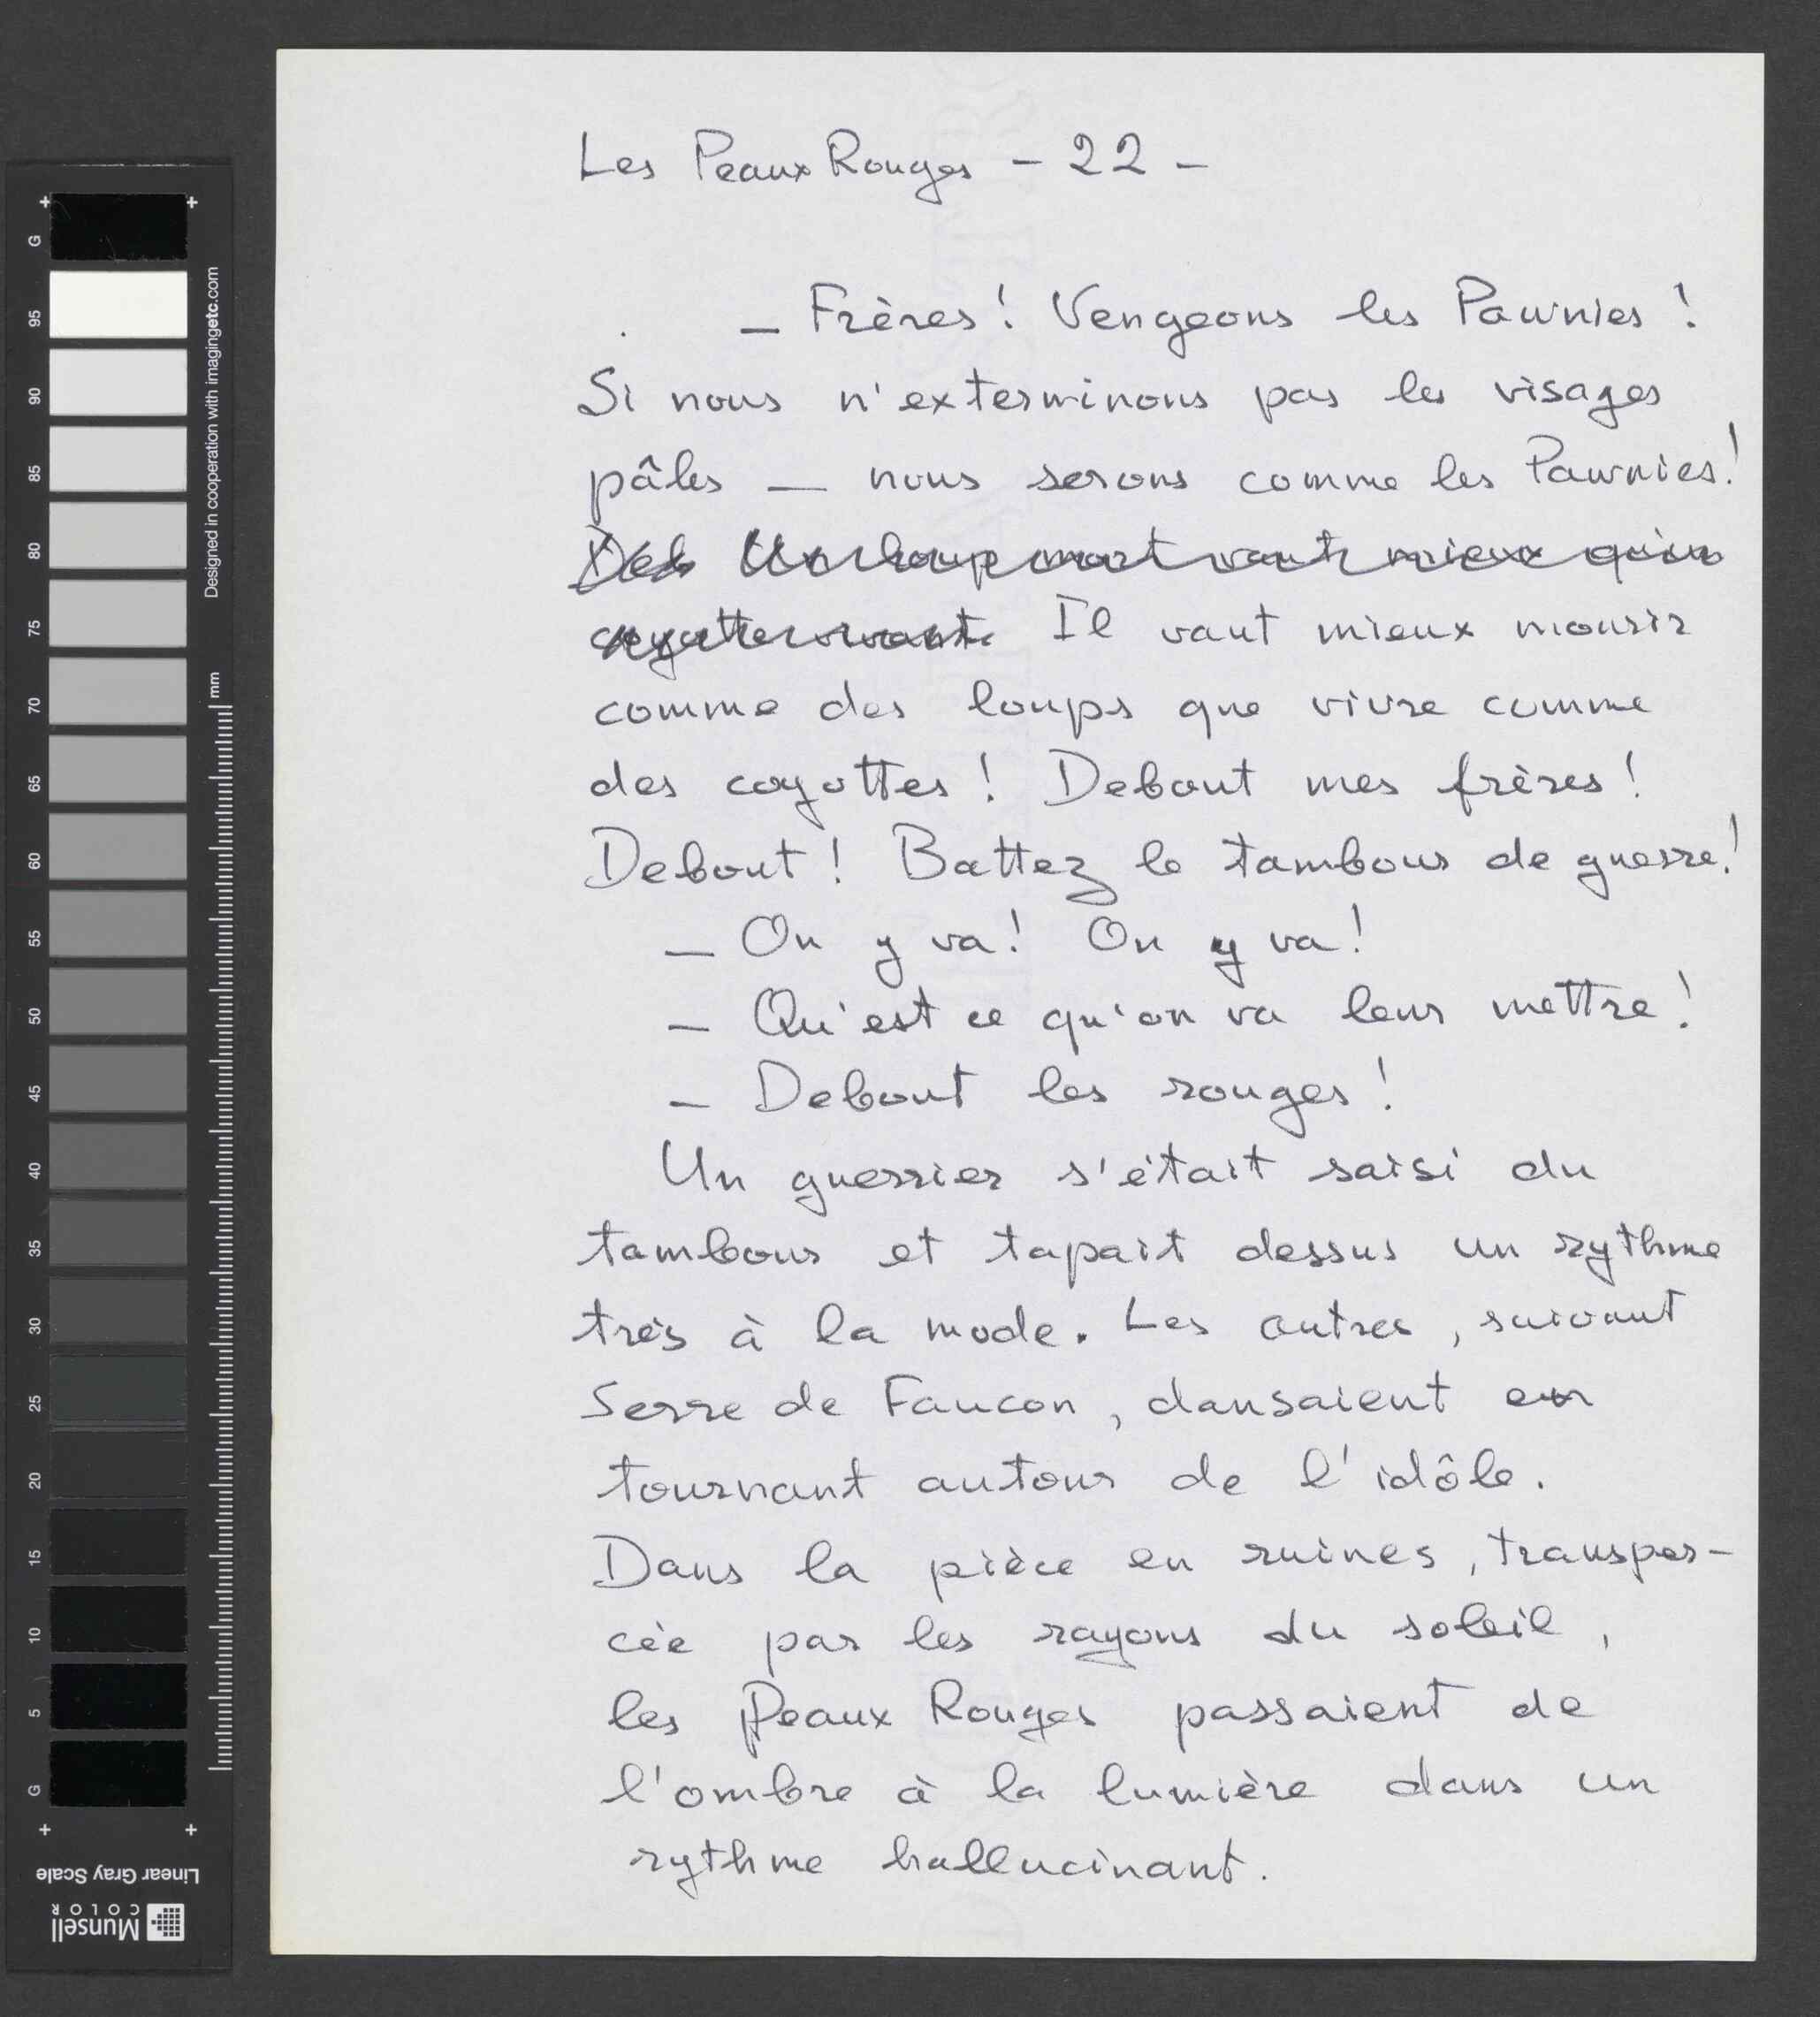 Les Peaux Rouges - 22 -
— Frères! Vengeons les Pawnies!
Si nous n'exterminons pas les visages
pâles — nous serons comme les Pawnies!
Un loup mort vaut mieux qu'un
coyotte vivant. Il vaut mieux mourir
comme des loups que vivre comme
des coyottes! Debout mes frères!
Debout! Battez le tambour de guerre!
— On y va! On y va!
— Qu'est ce qu'on va leur mettre!
— Debout les rouges!
Un guerrier s'était saisi du
tambour et tapait dessus un rythme
très à la mode. Les autres, suivant
Serre de Faucon, dansaient en
tournant autour de l'idôle.
Dans la pièce en ruines, transper-
cée par les rayons du soleil,
les Peaux Rouges passaient de
l'ombre à la lumière dans un
rythme hallucinant.
G
95
90
85
80
75
70
65
60
55
50
45
40
35
30
25
20
15
10
5
G
Designed in cooperation with imagingetc.com
mm
Linear Gray Scale
Munsell
COLOR